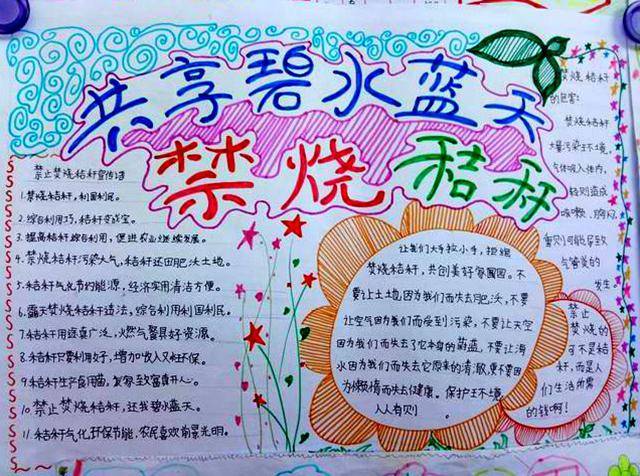 共享碧水蓝天
禁烧秸秆
禁止焚烧秸秆宣传语
1.焚烧秸秆,利国利民。
2.综合利用巧,秸秆变成宝。
3.提高秸秆综合利用,促进农业继续发展。
4.焚烧秸秆污染大气,秸秆还田肥沃土地。
5.秸秆气化节约能源,经济实用清洁方便。
6.露天焚烧秸秆违法,综合利用利国利民。
7.秸秆用途真广泛,燃气餐具好资源。
8.秸秆只要利用好,增加收入又环保。
9.秸秆生产食用菌,发家致富真开心。
10.禁止焚烧秸秆,还我碧水蓝天。
11.秸秆气化环保节能,农民喜欢前景光明。
让我们大手拉小手,拒绝
焚烧秸秆,共创美好家园。不
要让土地因为我们而失去肥沃,不要
让空气因为我们而受到污染,不要让天空
因为我们而失去了它本身的蔚蓝,不要让海
水因为我们而失去它原来的清澈,更不要因
为懒惰而失去健康。保护环境
人人有责
焚烧秸秆
的危害:
焚烧秸秆
大量污染环境。
气体吸入体内,
轻则造成
咳嗽,胸闷
重则可能导致
发生。
禁止
焚烧的
可不是秸
秆,而是人
们生活所需
的钱啊!